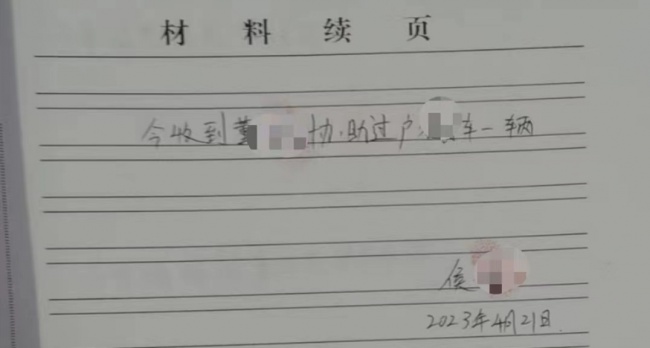 材料续页
今收到董协助过户车一辆
侯
2023年4月21日